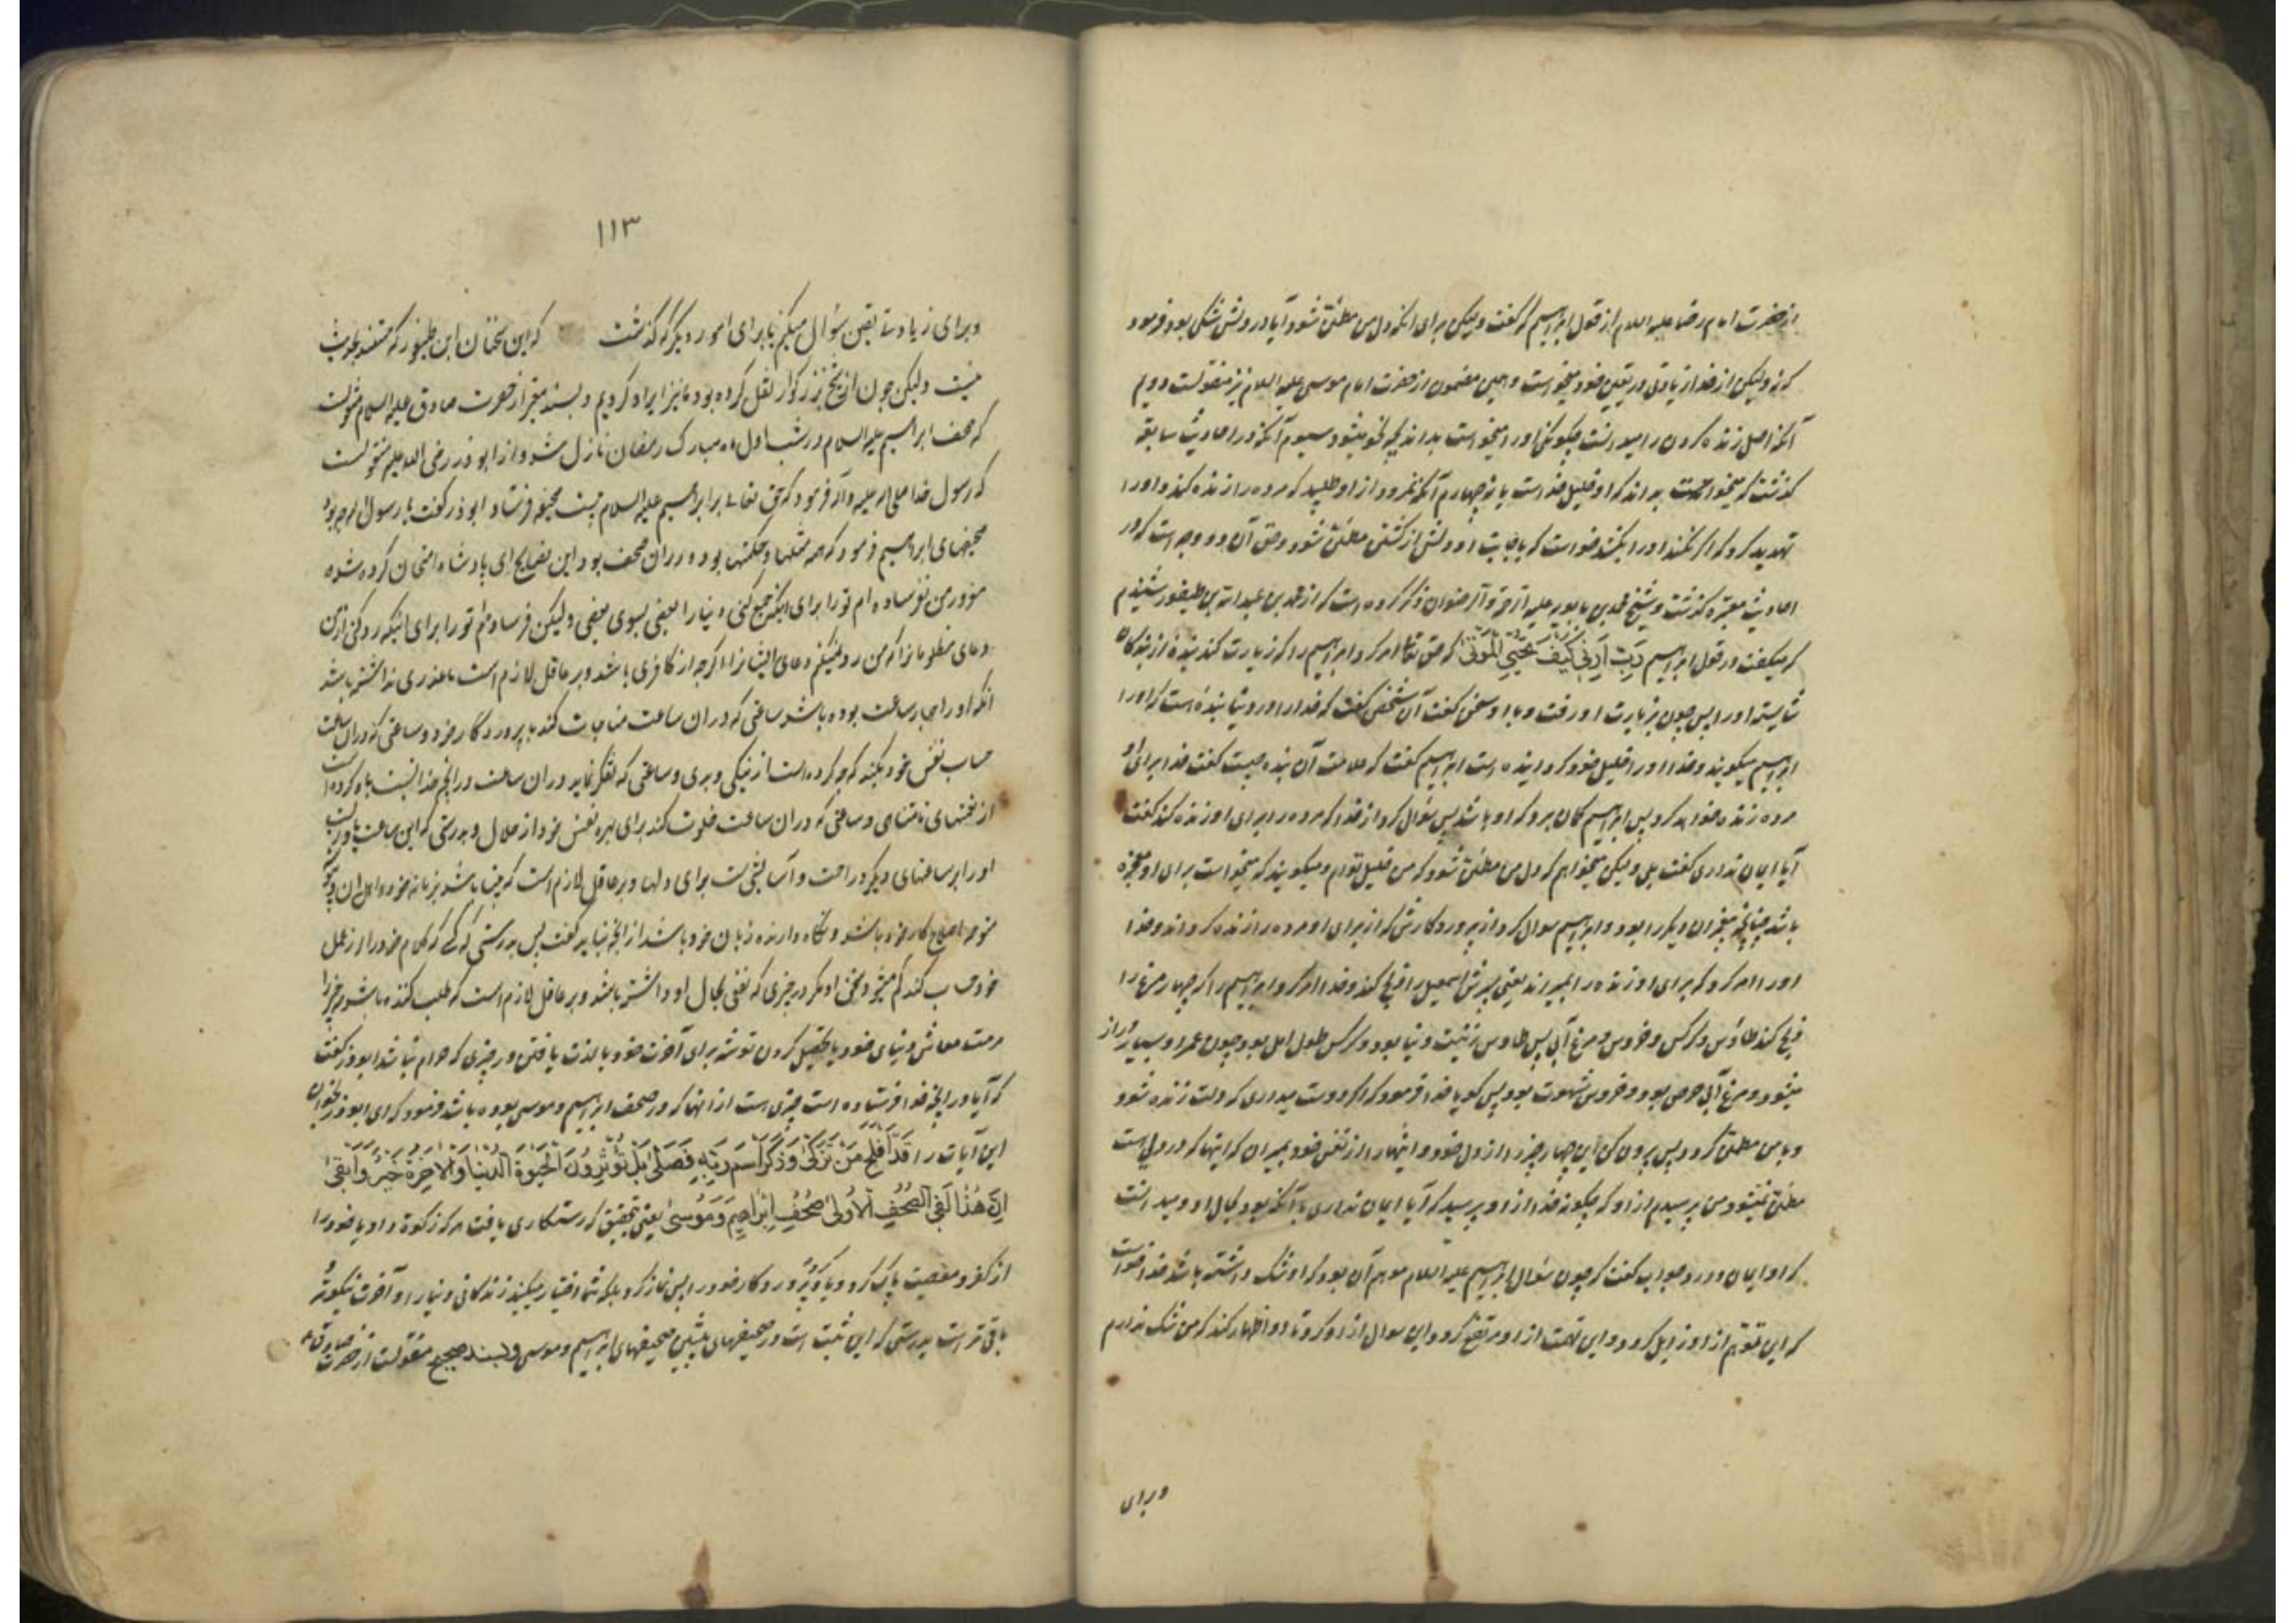 از حضرت امام رضا علیه السلام از قول ابراهیم که گفت ولیکن برای انکه دل من مطمئن شود آیا در دلش شکی بود فرمود
که نه ولیکن از خدا زیادتی در یقین خود میخواست و همین مضمون از حضرت امام موسی علیه السلام نیز منقولست دویم
آنکه اصل زنده کردن را میدانست چگونگی او را میخواست بداند که چگونه میشود سیوم آنکه در احادیث سابقه
گذشت که میخواست بداند که او خلیل خدا است یا نه چهارم آنکه نمرود از او طلبید که مرده را زنده کند و او را
تهدید کرد که اگر نکند او را بکشد خواست که باجابت او دلش از کشتن مطمئن شود و حق آن دو وجه است که در
احادیث معتبره گذشت و شیخ محمد بن بابویه علیه الرحمة و الرضوان ذکر کرده است که از محمد بن عبدالله بن طیفور شنیدم
که میگفت در قول ابراهیم رَبِّ اَرِنی کَیفَ تُحیِی المَوتی که حق تعالی امر کرد ابراهیم را که زیارت کند بنده از بندگان
شایسته او را پس چون بزیارت او رفت و با او سخن گفت آن شخص گفت که خدا را در دنیا بنده است که او را
ابراهیم میگویند و خدا او را خلیل خود گردانیده است ابراهیم گفت که علامت آن بنده چیست گفت خدا برای او
مرده زنده خواهد کرد پس ابراهیم گمان برد که او باشد پس سؤال کرد از خدا که مرده را برای او زنده کند گفت
آیا ایمان نداری گفت بلی ولیکن میخواهم که دل من مطمئن شود که من خلیل توام و میگویند که میخواست برای او معجزه
باشد چنانچه پیغمبران دیگر را بود و ابراهیم سوال کرد از پروردگارش که از برای او مرده را زنده گرداند و خدا
او را امر کرد که برای او زنده را بمیراند یعنی پسرش اسمعیل را ذبح کند و خدا امر کرد ابراهیم را که چهار مرغ را
ذبح کند طاؤس و کرکس و خروس و مرغ آبی پس طاوس زینت دنیا بود و کرکس طول امل بود چون عمر او بسیار دراز
میشود و مرغ آبی حرص بود و خروس شهوت بود پس گویا خدا فرمود که اگر دوست میداری که دلت زنده شود
و با من مطمئن گردد پس بیرون کن این چهار چیز را از دل خود و اینها را از نفس خود بمیران که اینها که در دلی است
مطمئن نمیشود و من پرسیدم از او که چگونه خدا از او پرسید که آیا ایمان نداری با آنکه بود بحال او و میدانست
که او ایمان دارد جواب گفت که چون سؤال ابراهیم علیه السلام موهم آن بود که او شک داشته باشد خدا خواست
که این توهم از او زایل گردد و این تهمت از او مرتفع گردد این سوال از او کرد تا او اظهار کند که من شک ندارم
وبرای
۱۱۳
وبرای زیادتی یقین سؤال میکنم یا برای امور دیگر که گذشت که این سخنان ابن طیفور که مستند بحدیث
نیست ولیکن چون ان شیخ بزرگوار نقل کرده بود ما نیز ایراد کردیم و بسند معتبر از حضرت صادق علیه السلام منقولست
که صحف ابراهیم علیه السلام در شب اول ماه مبارک رمضان نازل شد و از ابوذر رضی الله علیه منقولست
که رسول خدا صلی الله علیه و آله فرمود که حق تعالی بر ابراهیم علیه السلام بیست صحیفه فرستاد ابوذر گفت یا رسول الله چه بود
صحیفهای ابراهیم فرمود که همه مثلها و حکمتها بود و در ان صحف بود این نصایح ای پادشاه امتحان کرده شده
مغرور من نفرستاده ام تو را برای اینکه جمع کنی دنیا را بعضی بسوی بعضی ولیکن فرستادم تو را برای اینکه رد کنی از من
دعای مظلومانرا که من رد نمیکنم دعای ایشانرا اگرچه از کافری باشد و بر عاقل لازم است تا عذری نداشته باشد
آنکه او را چهار ساعت بوده باشد ساعتی که در ان ساعت مناجات کند با پروردگار خود و ساعتی که در ان ساعت
حساب نفس خود بکند که چه کرده است از نیکی و بدی و ساعتی که تفکر نماید در ان ساعت در انچه خدا نسبت باو کرده است
از نعمتهای نامتناهی و ساعتی که در ان ساعت خلوت کند برای بهره نفس خود از حلال و بدرستی که این ساعت یاور است
او را بر ساعتهای دیگر و راحت و آسایشی است برای دلها و بر عاقل لازم است که بینا باشد بزمانه خود و اهل ان و
متوجه اصلاح کار خود باشد و نگاه دارنده زبان خود باشد از انچه نباید گفت پس بدرستی که کسی که کلام خود را از عمل
خود حساب کند کم میشود سخن او مگر در چیزی که نفعی بحال او داشته باشد و بر عاقل لازم است که طلب کننده باشد سه چیز را
مرمت معاش دنیای خود یا تحصیل کردن توشه برای آخرت خود یا لذت یافتن در چیزی که حرام نباشد ابوذر گفت
که آیا در انچه خدا فرستاده است چیزی است از انها که در صحف ابراهیم و موسی بوده باشد فرمود که ای ابوذر بخوان
این آیات را قَد اَفلَحَ مَن تَزَکّی وَذَکَرَ اسمَ رَبِّهِ فَصَلّی بَل تُؤثِرُونَ الحَیوةَ الدُّنیا وَالاخِرَةُ خَیرٌ وَاَبقی
اِنَّ هذا لَفِی الصُّحُفِ الاُولی صُحُفِ اِبراهِیمَ وَمُوسی یعنی بتحقیق که رستگاری یافت هر که زکوة داد یا خود را
از کفر و معصیت پاک کرد و یاد کرد پروردگار خود را پس نماز کرد بلکه شما اختیار میکنید زندگانی دنیا را و آخرت نیکوتر و
باقی تر است بدرستی که این ثبت است در صحیفهای پیشین صحیفهای ابراهیم و موسی و بسند صحیح منقولست از حضرت صادق ع